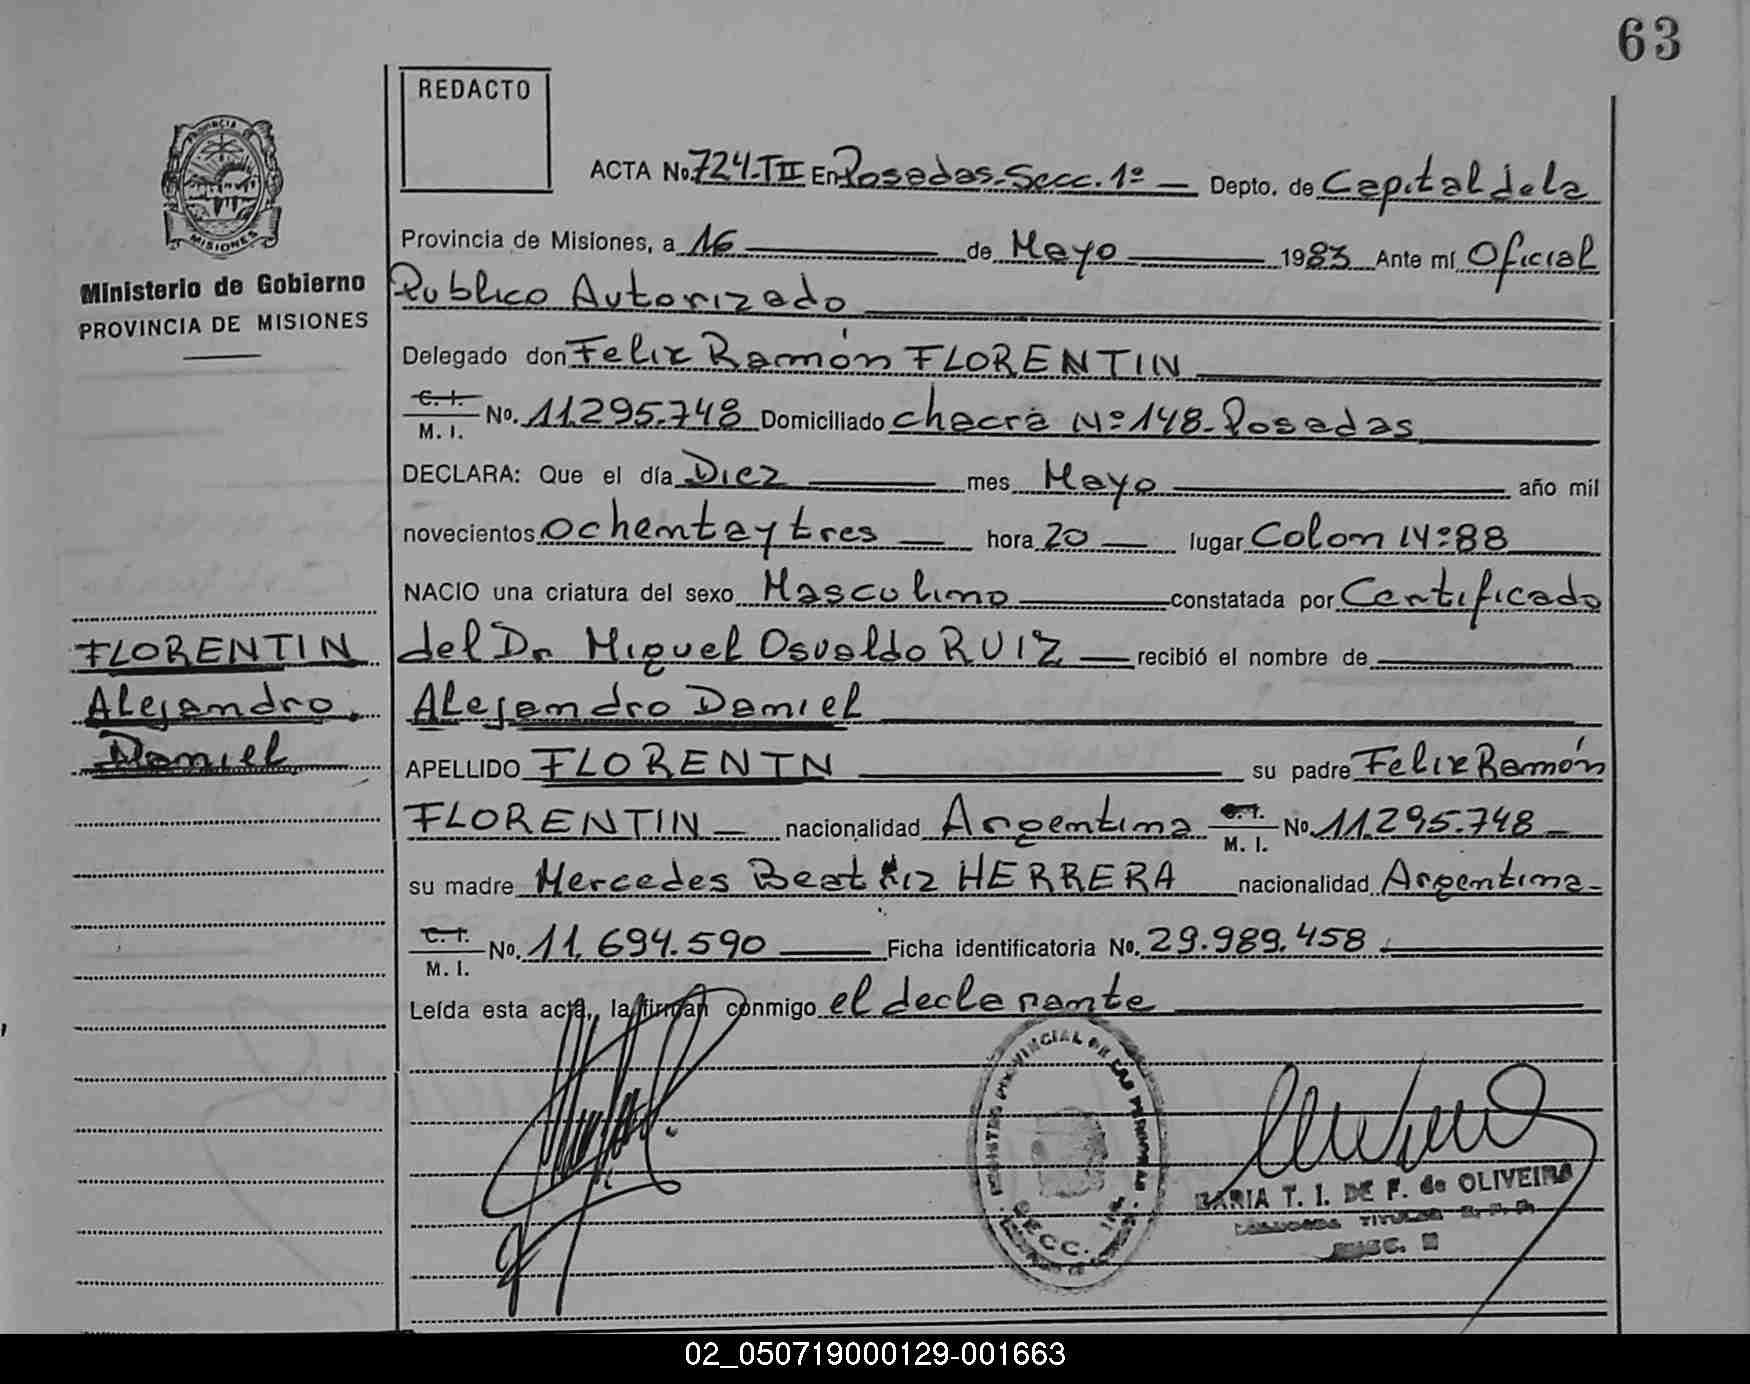 63
REDACTO
ACTA No. 724-TII En Posadas-Secc. 1º — Depto. de Capital de la
Provincia de Misiones, a 16 de Mayo 1983 Ante mí Oficial
Publico Autorizado
Delegado don Felix Ramón FLORENTIN
C. I. No. 11.295.748 Domiciliado chacra Nº 148-Posadas
M. I.
DECLARA: Que el día Diez mes Mayo año mil
novecientos ochenta y tres — hora 20 — lugar Colon Nº 88
NACIO una criatura del sexo Masculino constatada por Certificado
del Dr Miguel Osvaldo RUIZ — recibió el nombre de
Alejandro Daniel
APELLIDO FLORENTN su padre Felix Ramón
FLORENTIN — nacionalidad Argentina C. I. No. 11.295.748 —
M. I.
su madre Mercedes Beatriz HERRERA nacionalidad Argentina-
C. I. No. 11.694.590 Ficha identificatoria No. 29.989.458
M. I.
Leída esta acta, la firman conmigo el declarante
Ministerio de Gobierno
PROVINCIA DE MISIONES
FLORENTIN
Alejandro
Daniel
PROVINCIA DE
MISIONES
REGISTRO PROVINCIAL DE LAS PERSONAS
SECC. 1ra
MARIA T. I. DE F. de OLIVEIRA
TITULAR
SECC.
02_050719000129-001663